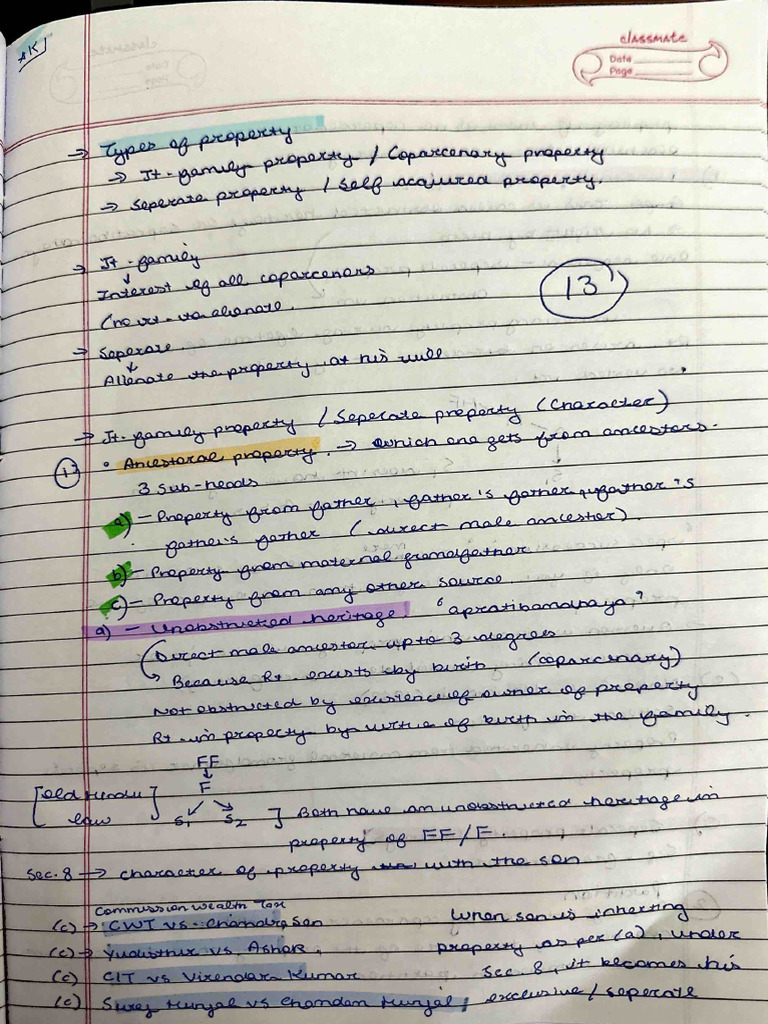 AK/
classmate
Date
Page
→ Types of property
→ Jt-family property / Coparcenary property
→ Seperate property / Self acquired property.
→ Jt-family
↓
Interest of all coparcenors
(no rt. to alienate.
13
→ Seperate.
↓
Alienate the property at his will
→ Jt-family property / Seperate property (Character)
1) • Ancestoral property. → Which one gets from ancestors.
3 Sub-heads
a) – Property from father, father's father, father's
father's father (direct male ancestor).
b) – Property from maternal grandfather.
c) – Property from any other source.
a) – Unobstructed heritage. 'apratibandhaya'
(Direct male ancestor upto 3 degrees
→ Because Rt. exists by birth (coparcenary)
Not obstructed by existence of owner of property
Rt. in property by virtue of birth in the family.
FF
↓
F
↙ ↘
S1 S2
[Old Hindu law]
] Both have an unobstructed heritage in
property of FF/F.
Sec. 8 → character of property with the son
Commission Wealth Tax
(c) → CWT vs. Chandra Sen
(c) → Yudister vs Ashok,
(c) CIT vs Virendara Kumar
(c) Suraj Munjal vs Chandan Munjal,
When son is inheriting
property as per (a), under
Sec. 8, it becomes his
exclusive / seperate